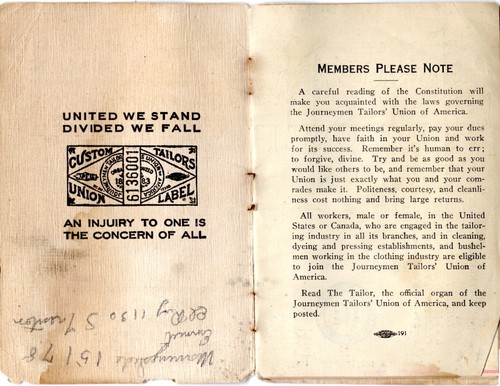 UNITED WE STAND
DIVIDED WE FALL
CUSTOM TAILORS
UNION LABEL
6136001
AN INJUIRY TO ONE IS
THE CONCERN OF ALL
Morningside 15178
1130 S
MEMBERS PLEASE NOTE
A careful reading of the Constitution will
make you acquainted with the laws governing
the Journeymen Tailors' Union of America.
Attend your meetings regularly, pay your dues
promptly, have faith in your Union and work
for its success. Remember it's human to err;
to forgive, divine. Try and be as good as you
would like others to be, and remember that your
Union is just exactly what you and your com-
rades make it. Politeness, courtesy, and cleanli-
ness cost nothing and bring large returns.
All workers, male or female, in the United
States or Canada, who are engaged in the tailor-
ing industry in all its branches, and in cleaning,
dyeing and pressing establishments, and bushel-
men working in the clothing industry are eligible
to join the Journeymen Tailors' Union of
America.
Read The Tailor, the official organ of the
Journeymen Tailors' Union of America, and keep
posted.
191